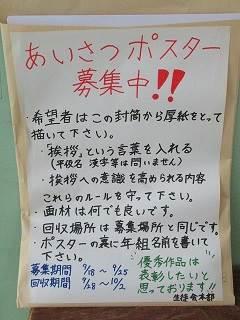 あいさつポスター
募集中!!
・希望者はこの封筒から厚紙をとって
描いて下さい。
・「挨拶」という言葉を入れる
(平仮名 漢字等は問いません)
・挨拶への意識を高められる内容
これらのルールを守って下さい。
・画材は何でも良いです。
・回収場所は募集場所と同じです。
・ポスターの裏に年組名前を書いて
下さい。
募集期間 9/18 ~ 9/25
回収期間 9/28 ~ 10/2
優秀作品は
表彰したいと
思っております!!
生徒会本部